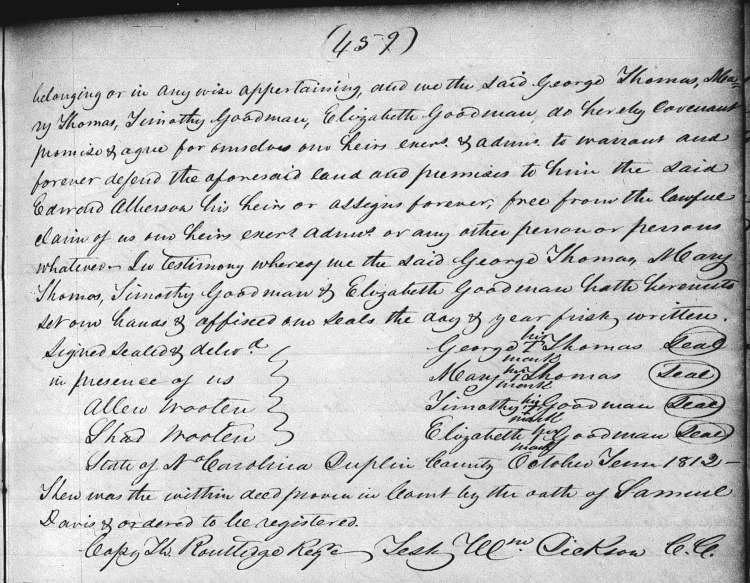 (459)
belonging or in any wise appertaining, and we the said George Thomas, Mea=
ry Thomas, Timothy Goodman, Elizabeth Goodman, do hereby covenant
promise & agree for ourselves our heirs exers. & admrs. to warrant and
forever defend the aforesaid land and premises to him the said
Edward Alberson his heirs or assigns forever, free from the lawful
claim of us our heirs exers admrs. or any other person or persons
whatever - In testimony whereof we the said George Thomas, Mary
Thomas, Timothy Goodman & Elizabeth Goodman hath hereunto
set our hands & affixed our seals the day & year first written.
Signed sealed & deliv.d George his mark Thomas Seal
in presence of us Mary her mark Thomas Seal
Allen Wooten Timothy his mark Goodman Seal
Shad Wooten Elizabeth her mark Goodman Seal
State of No Carolina Duplin County October Term 1812 -
Then was the within deed proven in Court by the oath of Samuel
Davis & ordered to be registered.
Copy Th. Routledge Regr Test Wm Dickson C.C.